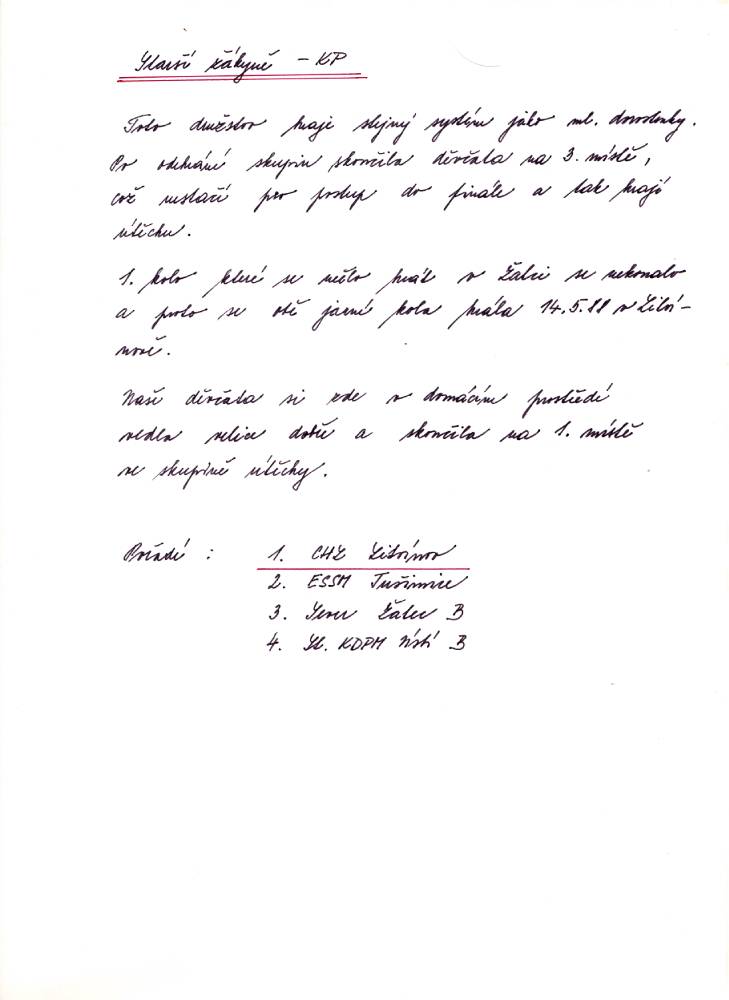 Starší žákyně - KP
Toto družstvo hraje stejný systém jako ml. dorostenky.
Po odehrání skupin skončila děvčata na 3. místě,
což nestačí pro postup do finále a tak hrají
útěchu.
1. kolo které se mělo hrát v Žatci se nekonalo
a proto se obě jarní kola hrála 14.5.88 v Litví-
nově.
Naše děvčata si zde v domácím prostředí
vedla velice dobře a skončila na 1. místě
ve skupině útěchy.
Pořadí : 1. CHZ Litvínov
2. ESSM Tušimice
3. Sever Žatec B
4. Sl. KDPM Ústí B